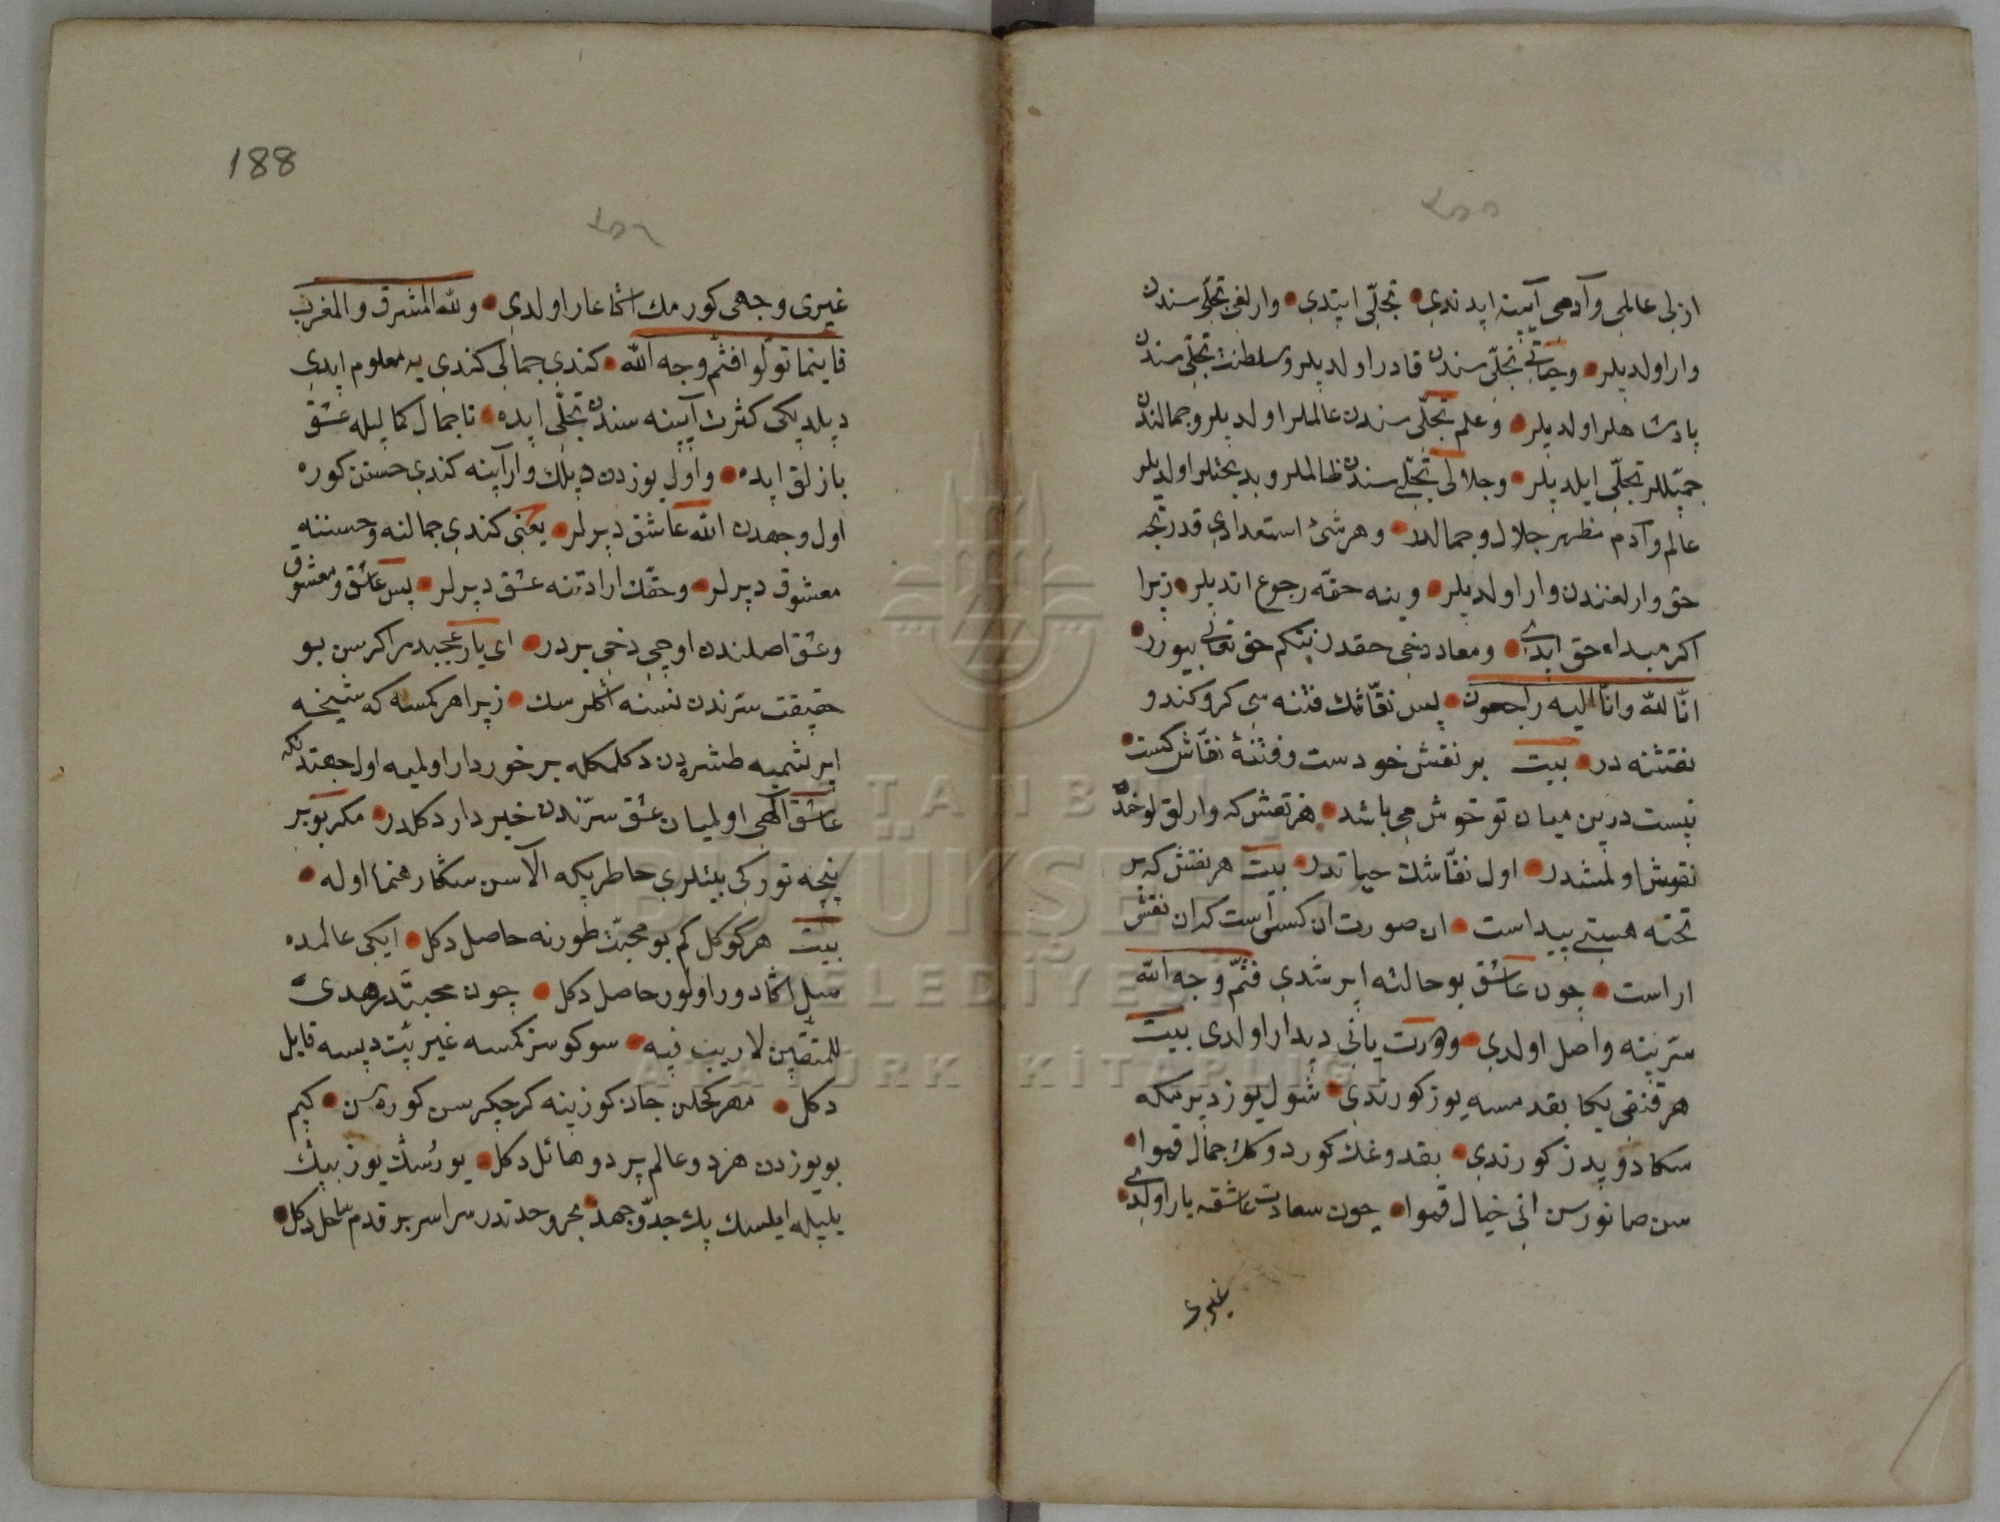 ازلی عالمی وآدمی آیینه ایدندی • تجلّی ایتدی • وارلغی تجلّی سندن
وار اولدیلر • وحیاتی تجلّی سندن قادر اولدیلر وسلطنت تجلّی سندن
پادشاهلر اولدیلر • وعلم تجلّی سندن عالملر اولدیلر وجمالندن
جمیللر تجلّی ایلدیلر • وجلالی تجلّی سندن ظالملر وبدبختلر اولدیلر
عالم وآدم مظهر جلال وجمالدر • وهر شئ استعدادی قدرنجه
حق وارلغندن وار اولدیلر • وینه حقّه رجوع اتدیلر • زیرا
اکر مبداء حق ایدی • ومعاد دخی حقدر نتکم حق تعالی بیورر •
انّا لله وانّا الیه راجعون • پس نقّاشك فتنه سی کرو کندو
نقشنه در • بیت بر نقش خودست وفتنهٔ نقّاش کست •
نیست درین میان تو خوش می باشد • هر نقش که وارلق لوحنده
نقوش اولمشدر • اول نقّاشك حیاتدر • بیت هر نقش که بر
تخته هستی پیداست • ان صورت ان کسی است که ان نقش
اراست • چون عاشق بو حالته ایرشدی فثمّ وجه الله
سترینه واصل اولدی • وهویت یانی دیدار اولدی بیت
هر قنقی یکا بقدمسه یوز کورندی • شول یوز دیرمکه
سکا دویدز کورندی • بقدوغك کوردوکك جمال قموا •
سن صانورسن انی خیال قموا • چون سعادت عاشقه یار اولدی •
غیری
188
٣٥٥
٣٥٦
غیری وجهی کورمك اکا عار اولدی • ولله المشرق والمغرب
فاینما تولّوا فثمّ وجه الله • کندی جمالی کندی یه معلوم ایدی
دیلدیکی کثرت آیینه سندن تجلّی ایده • تا جمال کمالیله عشق
بازلق ایده • واول یوزدن دیلك وار آینه کندی حسنن کوره
اول وجهدن الله عاشق دیرلر • یعنی کندی جمالنه وحسننه
معشوق دیرلر • وحقّك ارادتنه عشق دیرلر • پس عاشق ومعشوق
وعشق اصلندن اوچی دخی بر در • ای یار عجبدر اکر سن بو
حقیقت سترندن نسنه اکلرسك • زیرا هر کمسه که شیخه
ایرشمیه طشره دن دکلمکله برخوردار اولمیه اول جهتدنکه
عاشق الهی اولمیان عشق سرّندن خبردار دکلدر • مکر بو بر
پنجه تورکی بیتلری حاطریکه الاسن سکا رهنما اوله •
بیت هر کوکل کم بو محبّت طورنه حاصل دکل • ایکی عالمده
سبل اکا دور اولور حاصل دکل • چون محبتّدر هدی
للمتقین لا ریب فیه • سوکوسز کمسه غیریّت دیسه قایل
دکل • مهر کحلن جان کوزینه کر چکرسن کوره سن • کیم
بو یوزدن هر دو عالم پردو هائل دکل • یورُسك یوز بیك
ییلیله ایلسك پك جدّ وجهد • بحر وحدتدر سراسر بر قدم ساحل دکل •